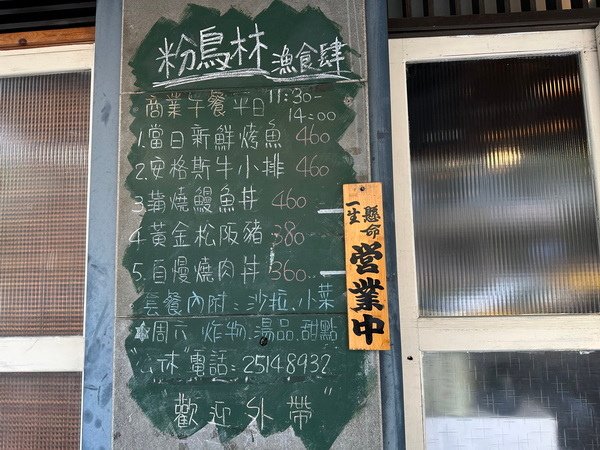 粉鳥林 漁食肆
商業午餐 平日 11:30-14:00
1.當日新鮮烤魚 460
2.安格斯牛小排 460
3.蒲燒鰻魚丼 460
4.黃金松阪豬 380
5.自慢燒肉丼 360
套餐內附:沙拉.小菜
周六 炸物.湯品.甜點
"公休" 電話:25148932
歡迎外帶"
一生懸命
営業中